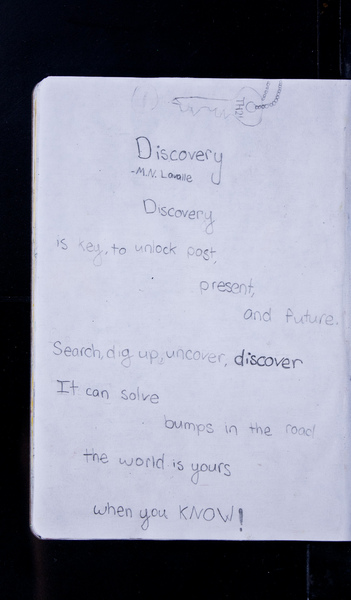 Discovery
-M.N. Lavalle
Discovery
is key, to unlock past,
present,
and future.
Search, dig up, uncover, discover
It can solve
bumps in the road
the world is yours
when you KNOW!